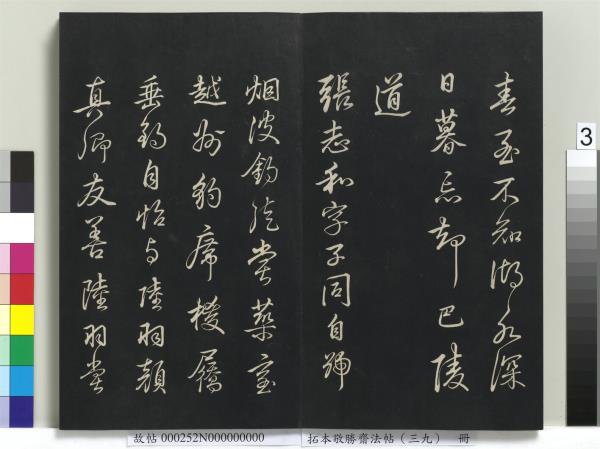 春至不知湖水深
日暮忘却巴陵
道
張志和字子同自號
烟波釣徒嘗築室
越州豹席椶屩
垂釣自怡与陸羽顔
真卿友善陸羽嘗
3
故帖 000252N000000000 拓本敬勝齋法帖(三九) 冊